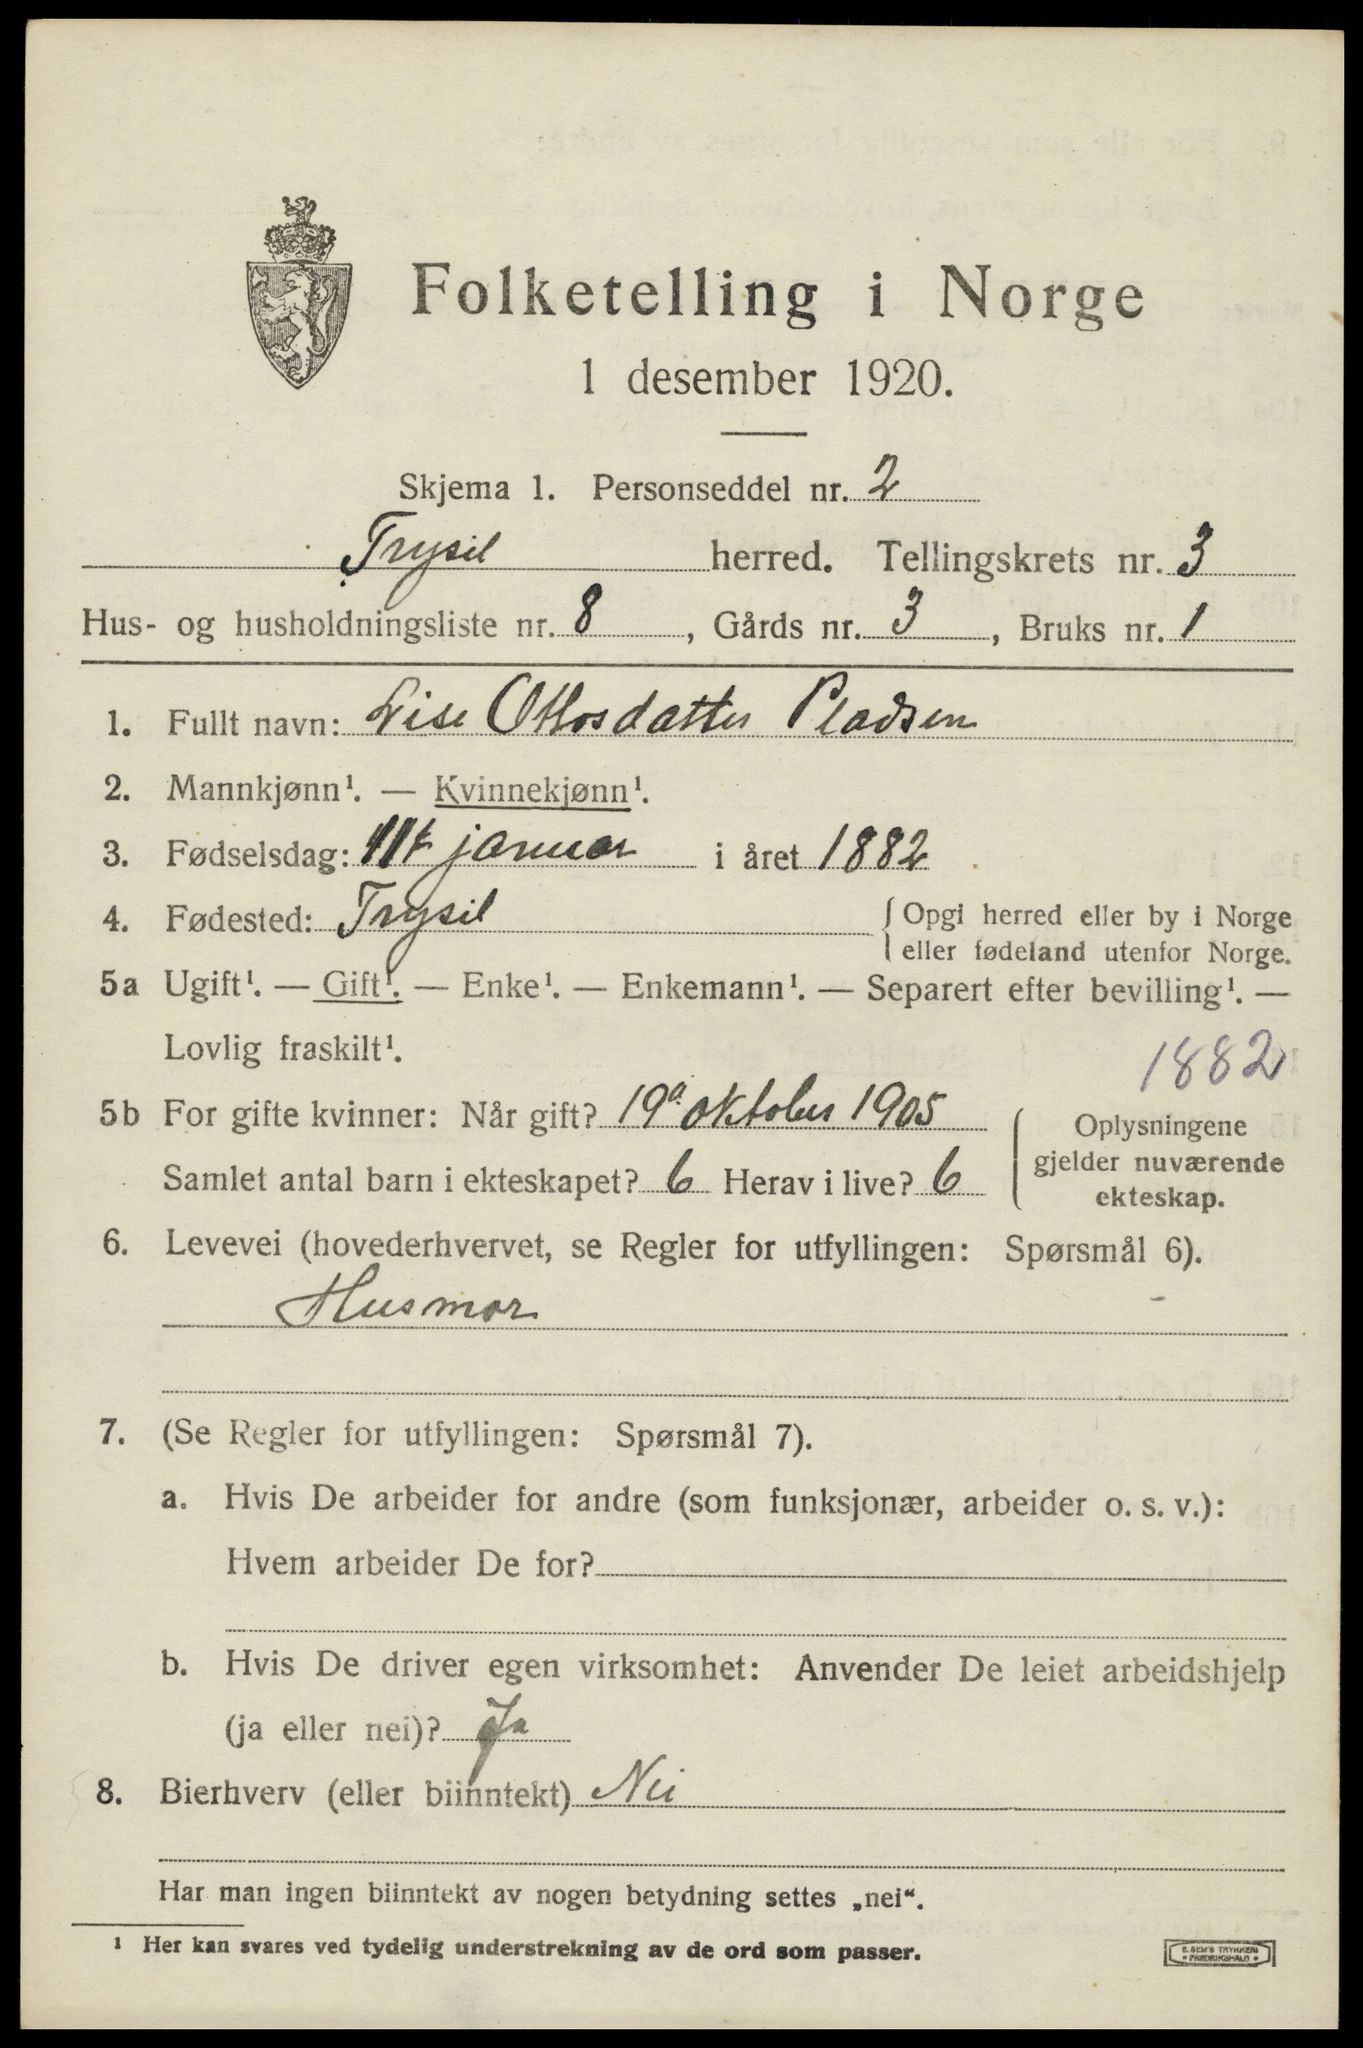 Folketelling i Norge
1 desember 1920.
Skjema 1. Personseddel nr. 2
Trysil herred. Tellingskrets nr. 3
Hus- og husholdningsliste nr. 8, Gårds nr. 3, Bruks nr. 1
1. Fullt navn: Lise Ottosdatter Pladsen
2. Mannkjønn¹. — Kvinnekjønn¹.
3. Fødselsdag: januar i året 1882
4. Fødested: Trysil { Opgi herred eller by i Norge
eller fødeland utenfor Norge.
5a Ugift¹. — Gift¹. — Enke¹. — Enkemann¹. — Separert efter bevilling¹. —
Lovlig fraskilt¹.
1882
5b For gifte kvinner: Når gift? 19de oktober 1905
Samlet antal barn i ekteskapet? 6 Herav i live? 6
Oplysningene
gjelder nuværende
ekteskap.
6. Levevei (hovederhvervet, se Regler for utfyllingen: Spørsmål 6).
Husmor
7. (Se Regler for utfyllingen: Spørsmål 7).
a. Hvis De arbeider for andre (som funksjonær, arbeider o. s. v.):
Hvem arbeider De for?
b. Hvis De driver egen virksomhet: Anvender De leiet arbeidshjelp
(ja eller nei)? Ja
8. Bierhverv (eller biinntekt) Nei
Har man ingen biinntekt av nogen betydning settes „nei“.
¹ Her kan svares ved tydelig understrekning av de ord som passer.
E. SEM'S TRYKKERI
FREDRIKSHALD